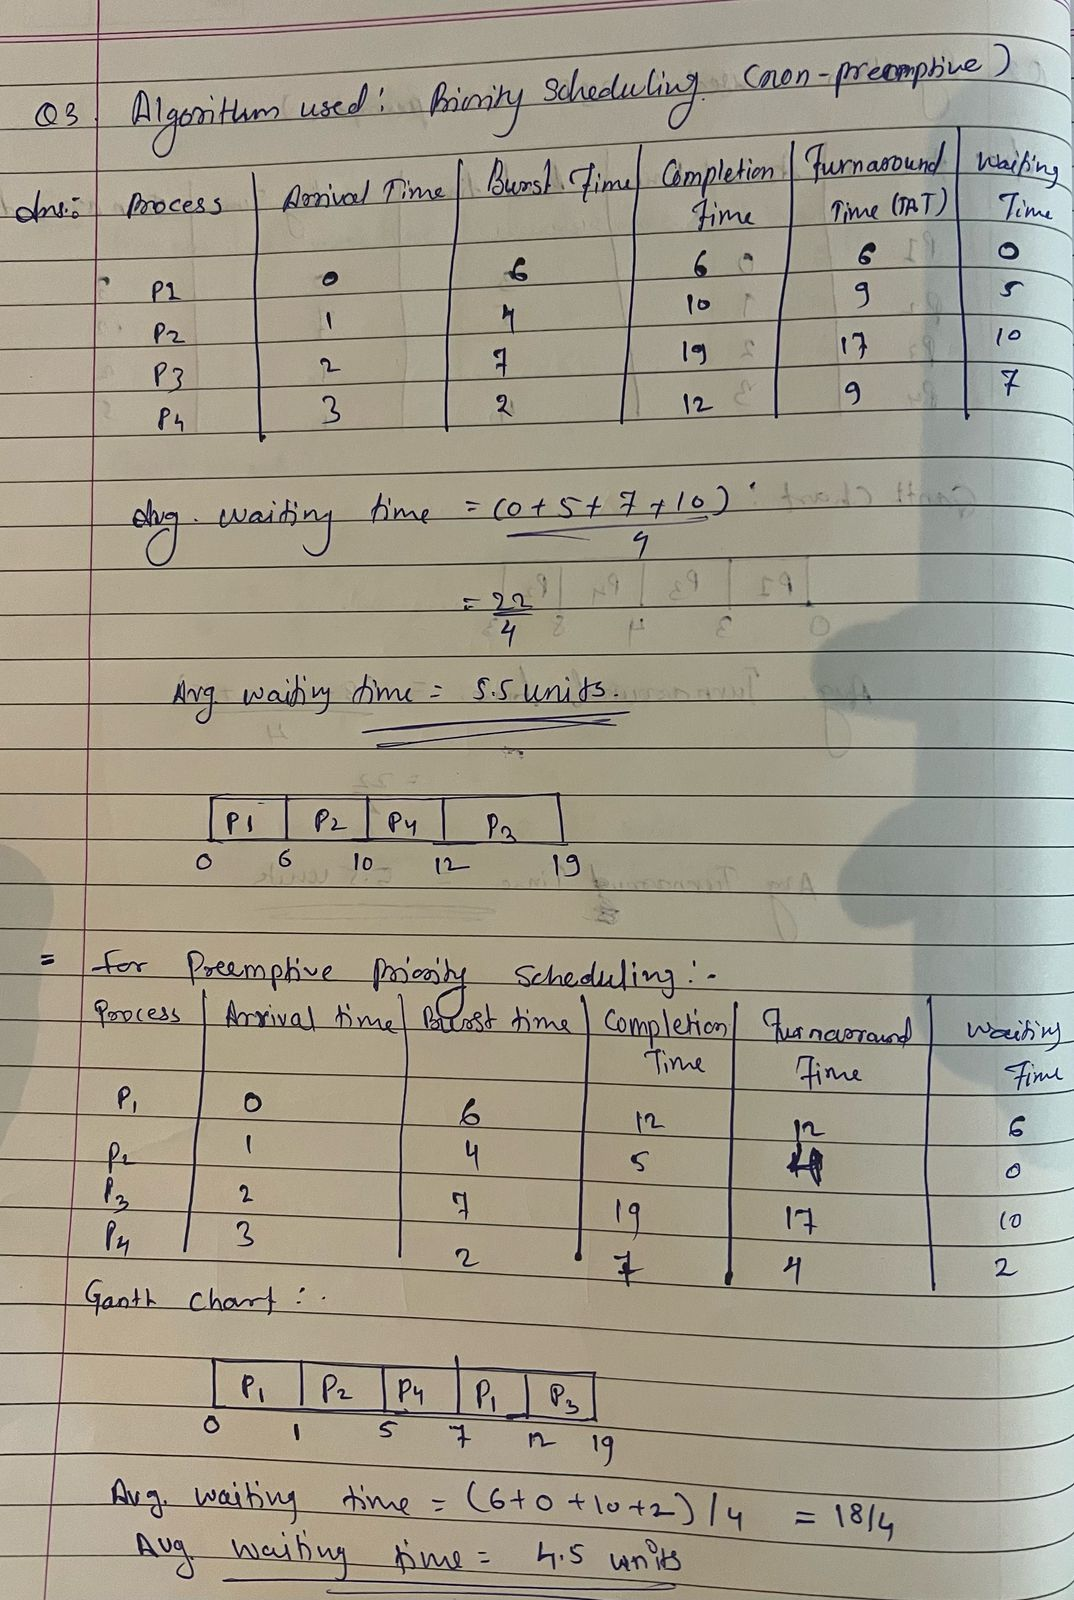 Q3 Algorithm used: Priority Scheduling (non-preemptive)
Ans:- Process Arrival Time Burst Time Completion Time Turnaround Time (TAT) Waiting Time
P1 0 6 6 6 0
P2 1 4 10 9 5
P3 2 7 19 17 10
P4 3 2 12 9 7
Avg. waiting time = (0+5+7+10)
4
= 22
4
Avg. waiting time = 5.5 units.
P1 P2 P4 P3
0 6 10 12 19
= for Preemptive Priority Scheduling:-
Process Arrival time Burst time Completion Time Turnaround Time Waiting Time
P1 0 6 12 12 6
P2 1 4 5 4 0
P3 2 7 19 17 10
P4 3 2 7 4 2
Ganth Chart:-
P1 P2 P4 P1 P3
0 1 5 7 12 19
Avg. waiting time = (6+0+10+2)/4 = 18/4
Avg. waiting time = 4.5 units